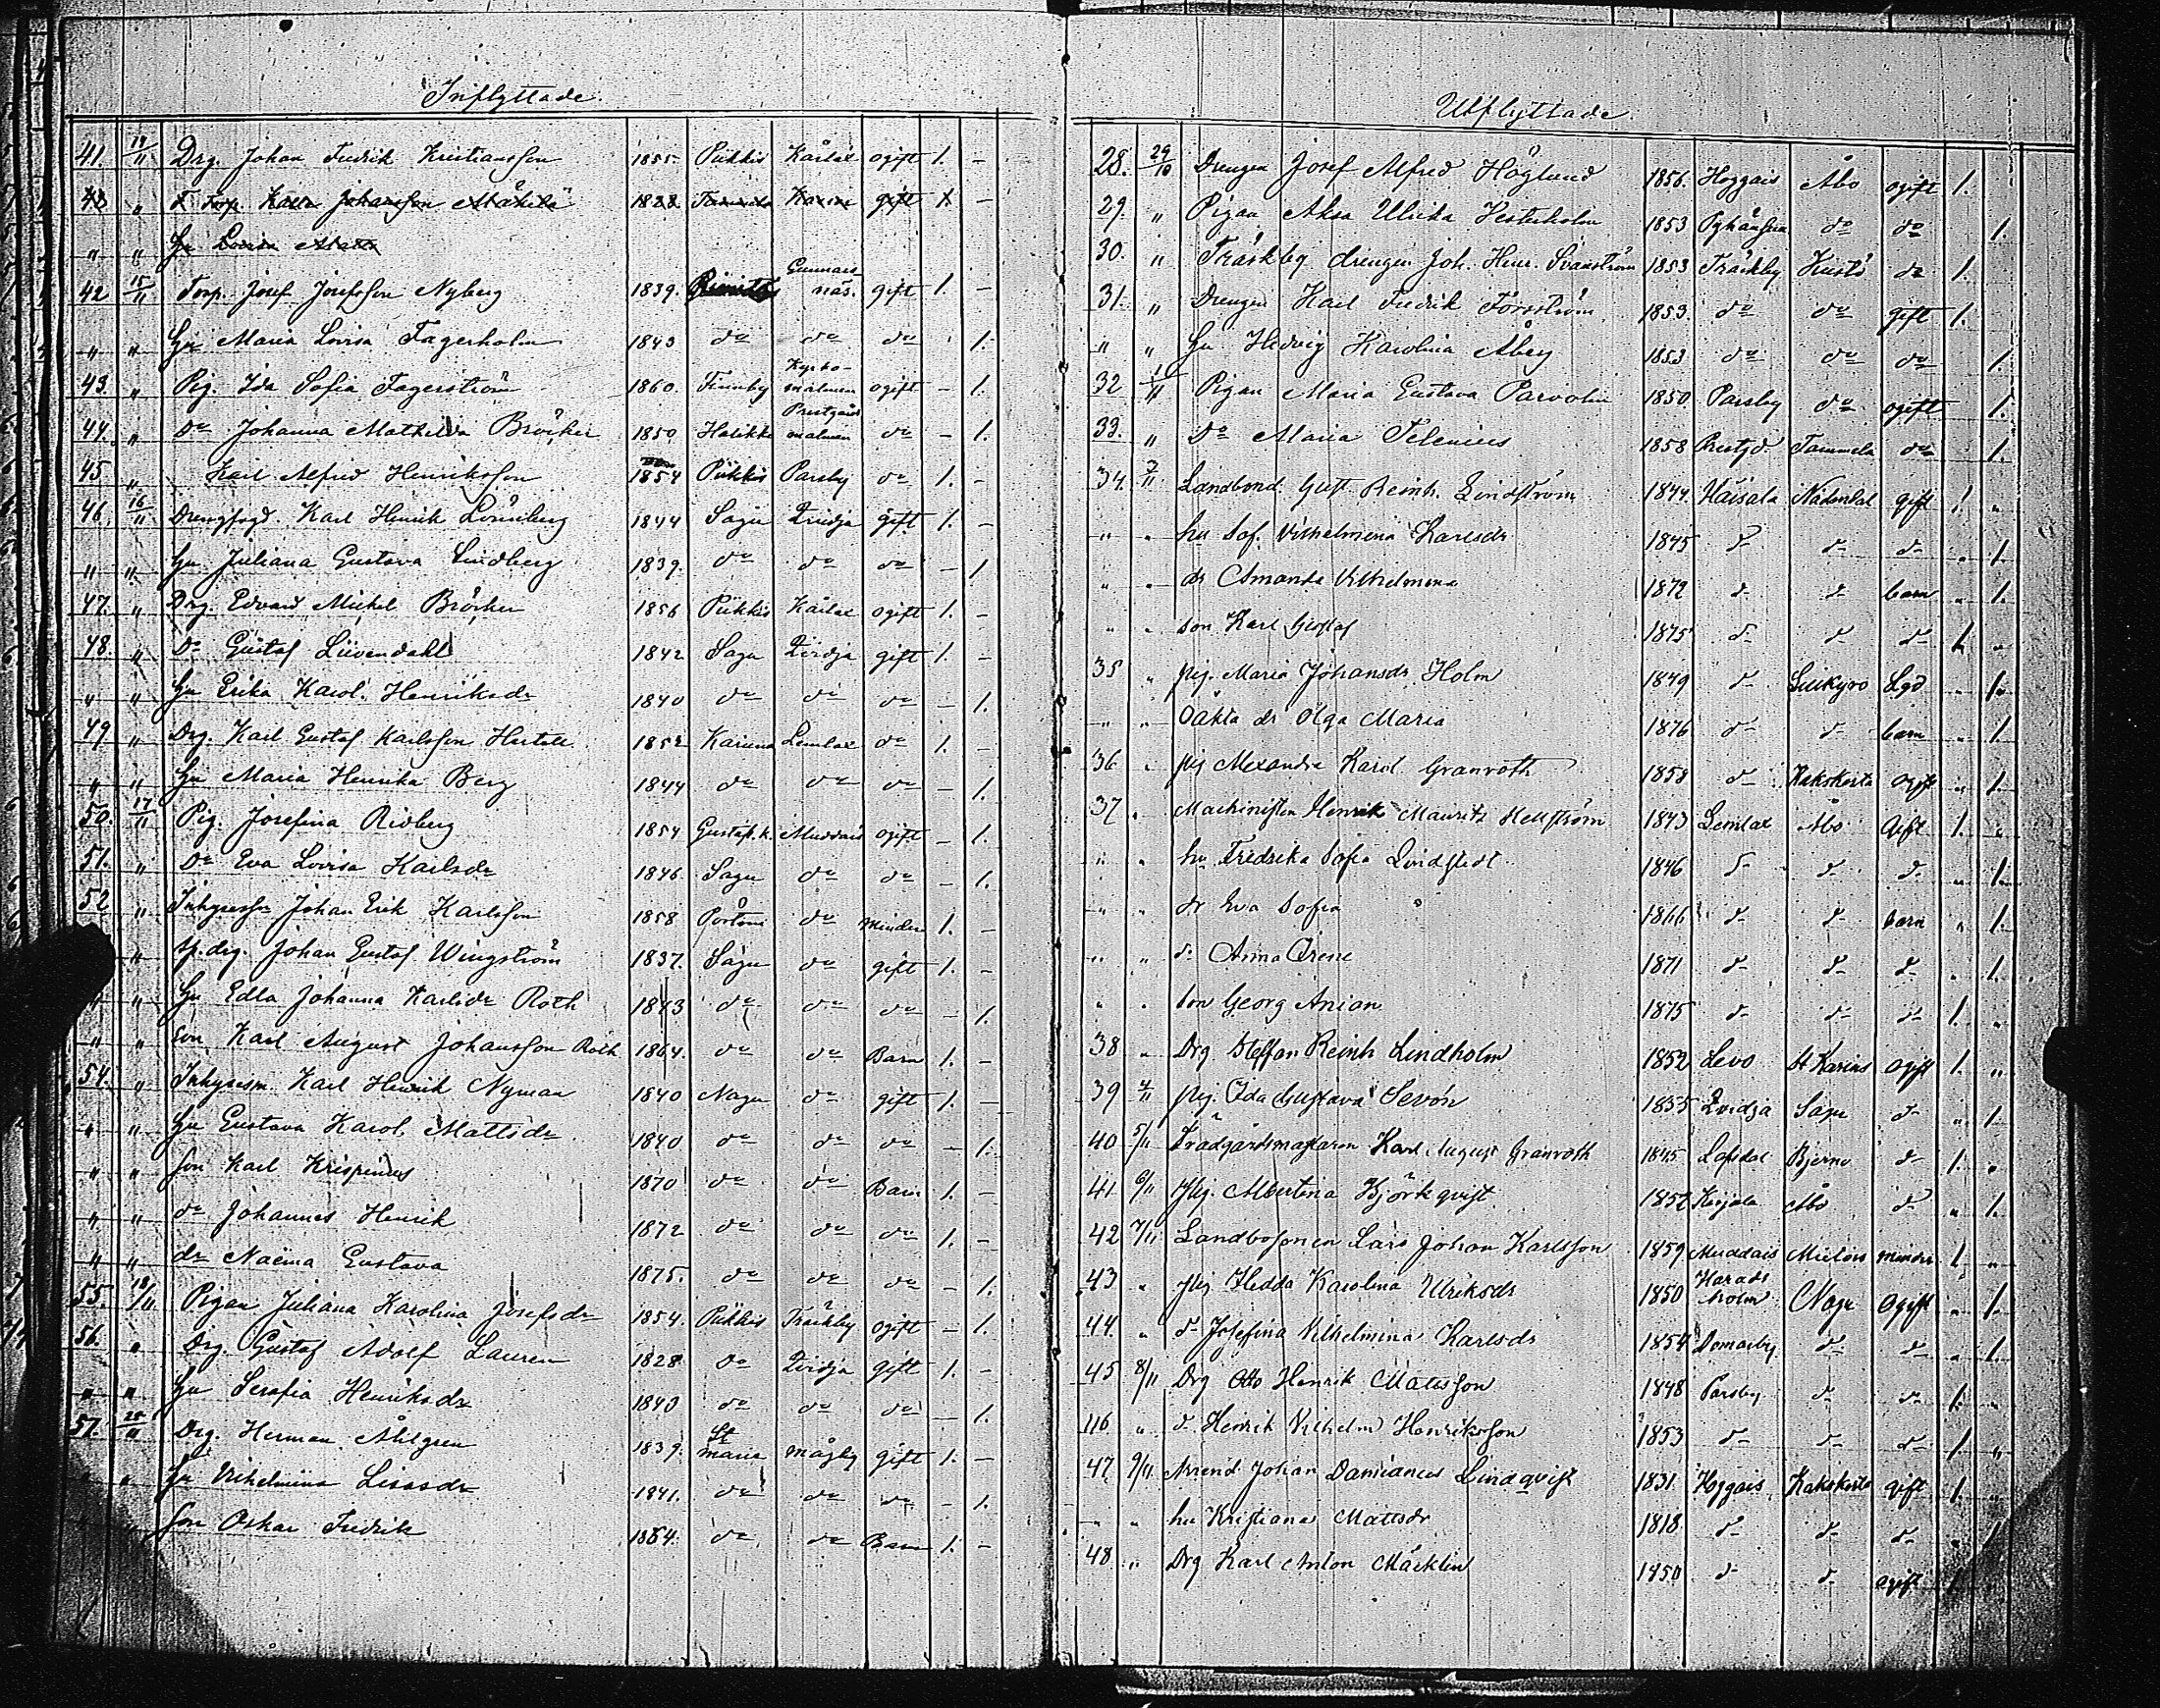 Inflyttade.
41. 13/11 Drg. Johan Fredrik Kristiansson 1855. Piikkis Kårlax ogift 1. -
42 " Torp. Kalle Johansson 1828 gift 1 -
" " Hu Lovisa Matts
42 15/11 Torp. Josef Josefsson Nyberg 1839. Rimito Gunnars näs. gift 1. -
" " Hu Maria Lovisa Fagerholm 1843 do do do - 1.
43. " Pig. Ida Sofia Fagerström 1860. Finnby Kyrko- malmen ogift - 1.
44. " do Johanna Mathilda Bröcker 1850 Halikko Prestgårds malmen do - 1.
45 " Karl Alfred Henriksson 1854 Piikkis Parsby do 1. -
46. 16/11 Drengfogd. Karl Henrik Lönnberg 1844 Sagu Qvidja gift 1. -
" " Hu Juliana Gustava Lindberg 1839. do do do - 1
47. " Drg. Edvard Mickel Bröcker 1856 Piikkis Kårlax ogift 1. -
48. " do Gustaf Liivendahl 1842 Sagu Qvidja gift 1. -
" " Hu Erika Karol. Henriksdr 1840 do do do - 1.
49 " Drg. Karl Gustaf Karlsson Hertell 1852 Karuna Lemlax do 1. -
" " Hu Maria Henrika Berg 1844 do do do - 1.
50. 17/11 Pig. Josefina Ridberg 1854 Gustaf. k. Muddais ogift - 1.
51. " do Eva Lovisa Karlsdr 1846 Sagu do do - 1.
52 " Inhyresson Johan Erik Karlsson 1858 Pörtom do minder 1. -
" Sp. drg. Johan Gustaf Wingström 1837. Sagu do gift 1. -
" " Hu Edla Johanna Karlsdr Roth 1843 do do do - 1.
" " son Karl August Johansson Roth 1864. do do Barn 1. -
54. " Inhyresm. Karl Henrik Nyman 1840 Nagu do gift 1. -
" " Hu Gustava Karol. Mattsdr 1840 do do do - 1.
" " son Karl Krispinus 1870 do do Barn 1. -
" " do Johannes Henrik 1872 do do do 1. -
" " dr Naëma Gustava 1875. do do do - 1.
55. 18/11 Pigan Juliana Karolina Josefsdr 1854. Piikkis Träskby ogift - 1.
56. " Drg. Gustaf Adolf Lauren 1828 do Qvidja gift 1. -
" " Hu Serafia Henriksdr 1840 do do do - 1.
57. 25/11 Drg. Herman Ahlgren 1839. St Maria Mågby gift 1. -
" " Hu Vilhelmina Lisasdr 1841. do do do - 1.
" " son Oskar Fredrik 1864. do do Barn 1. -
Utflyttade.
28. 29/10 Drengen Josef Alfred Höglund 1856. Hoggais Åbo ogift 1.
29. " Pigan Aksa Ulrika Vesterholm 1853 do do 1.
30. " Träskby drengen Joh. Henr. Svanström 1853 Träskby Kustö do 1.
31. " Drengen Karl Fredrik Forsström 1853. do do gift 1.
" " Hu Hedvig Karolina Åberg 1853 do do do 1.
32 1/11 Pigan Maria Gustava Parvolin 1850 Parsby do ogift 1.
33. " do Maria Telenius 1858 Prestgd. Tammela do 1.
34. 2/11 Landbond. Gust. Reinh. Lindström 1844. Haisala Nådendal gift 1. "
" " hu Sof. Vilhelmina Karlsdr 1845 d- d- d- " 1.
" " dr Amanda Vilhelmina 1872 d- d- barn " 1.
" " son Karl Gustaf 1875 d- d- d- 1. "
35 " pig. Maria Johansdr Holm 1849 d- Storkyro Lgd " 1.
" " Oäkta dr Olga Maria 1876 d- d- barn " 1.
36 " pig Alexandra Karol. Granroth 1858 d- Kakskerta ogift " 1.
37 " Machinisten Henrik Maurits Hellström 1843 Lemlax Åbo Gift 1. "
" " hu Fredrika Sofia Lindstedt 1846 d- d- d- " 1.
" " dr Eva Sofia 1866 d- d- barn " 1.
" " d- Anna Irene 1871 d- d- d- " 1.
" " son Georg Anian 1875 d- d- d- 1. "
38 " Drg Steffan Reinh Lindholm 1852 Levo St Karins ogift 1. "
39 4/11 pig. Ida Gustava Sevón 1855 Qvidja Sagu d- " 1.
40 5/11 Trädgårdsmästaren Karl August Granroth 1845 Lofsdal Bjerno d- 1. "
41 6/11 Pig. Albertina Björkqvist 1852 Kirjala Åbo d- " 1.
42 7/11 Landbosonen Lars Johan Karlsson 1859 Muddais Mietois mindre 1. "
43 " pig Hedda Karolina Ulriksdr 1850 Harads holm Nagu Ogift " 1.
44. " d- Josefina Vilhelmina Karlsdr 1854 Domarby d- d- " 1.
45 8/11 Drg Otto Henrik Mattsson 1848 Parsby d- d- 1. "
46. " d- Henrik Vilhelm Henriksson 1853 d- d- d- 1. "
47 9/11 Arrend Johan Damianus Lindqvist 1831 Hoggais Kakskerta gift 1. "
" " hu Kristiana Mattsdr 1818 d- d- d- " 1.
48 " Drg Karl Anton Mäcklin 1850 d- d- ogift 1. "